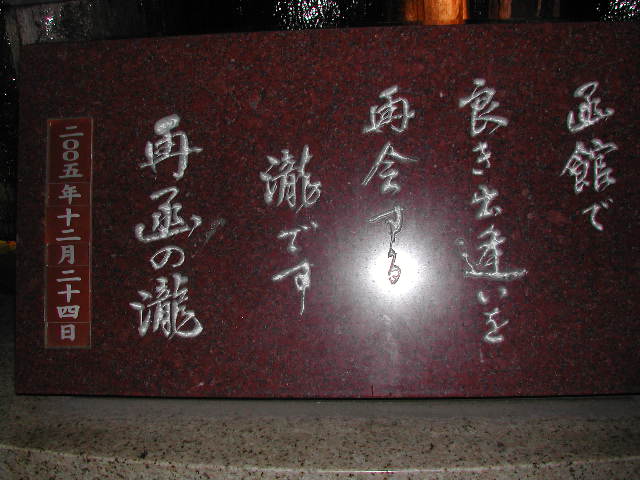 函館で
良き出逢いを
再会する
瀧です
再函の瀧
二〇〇五年十二月二十四日